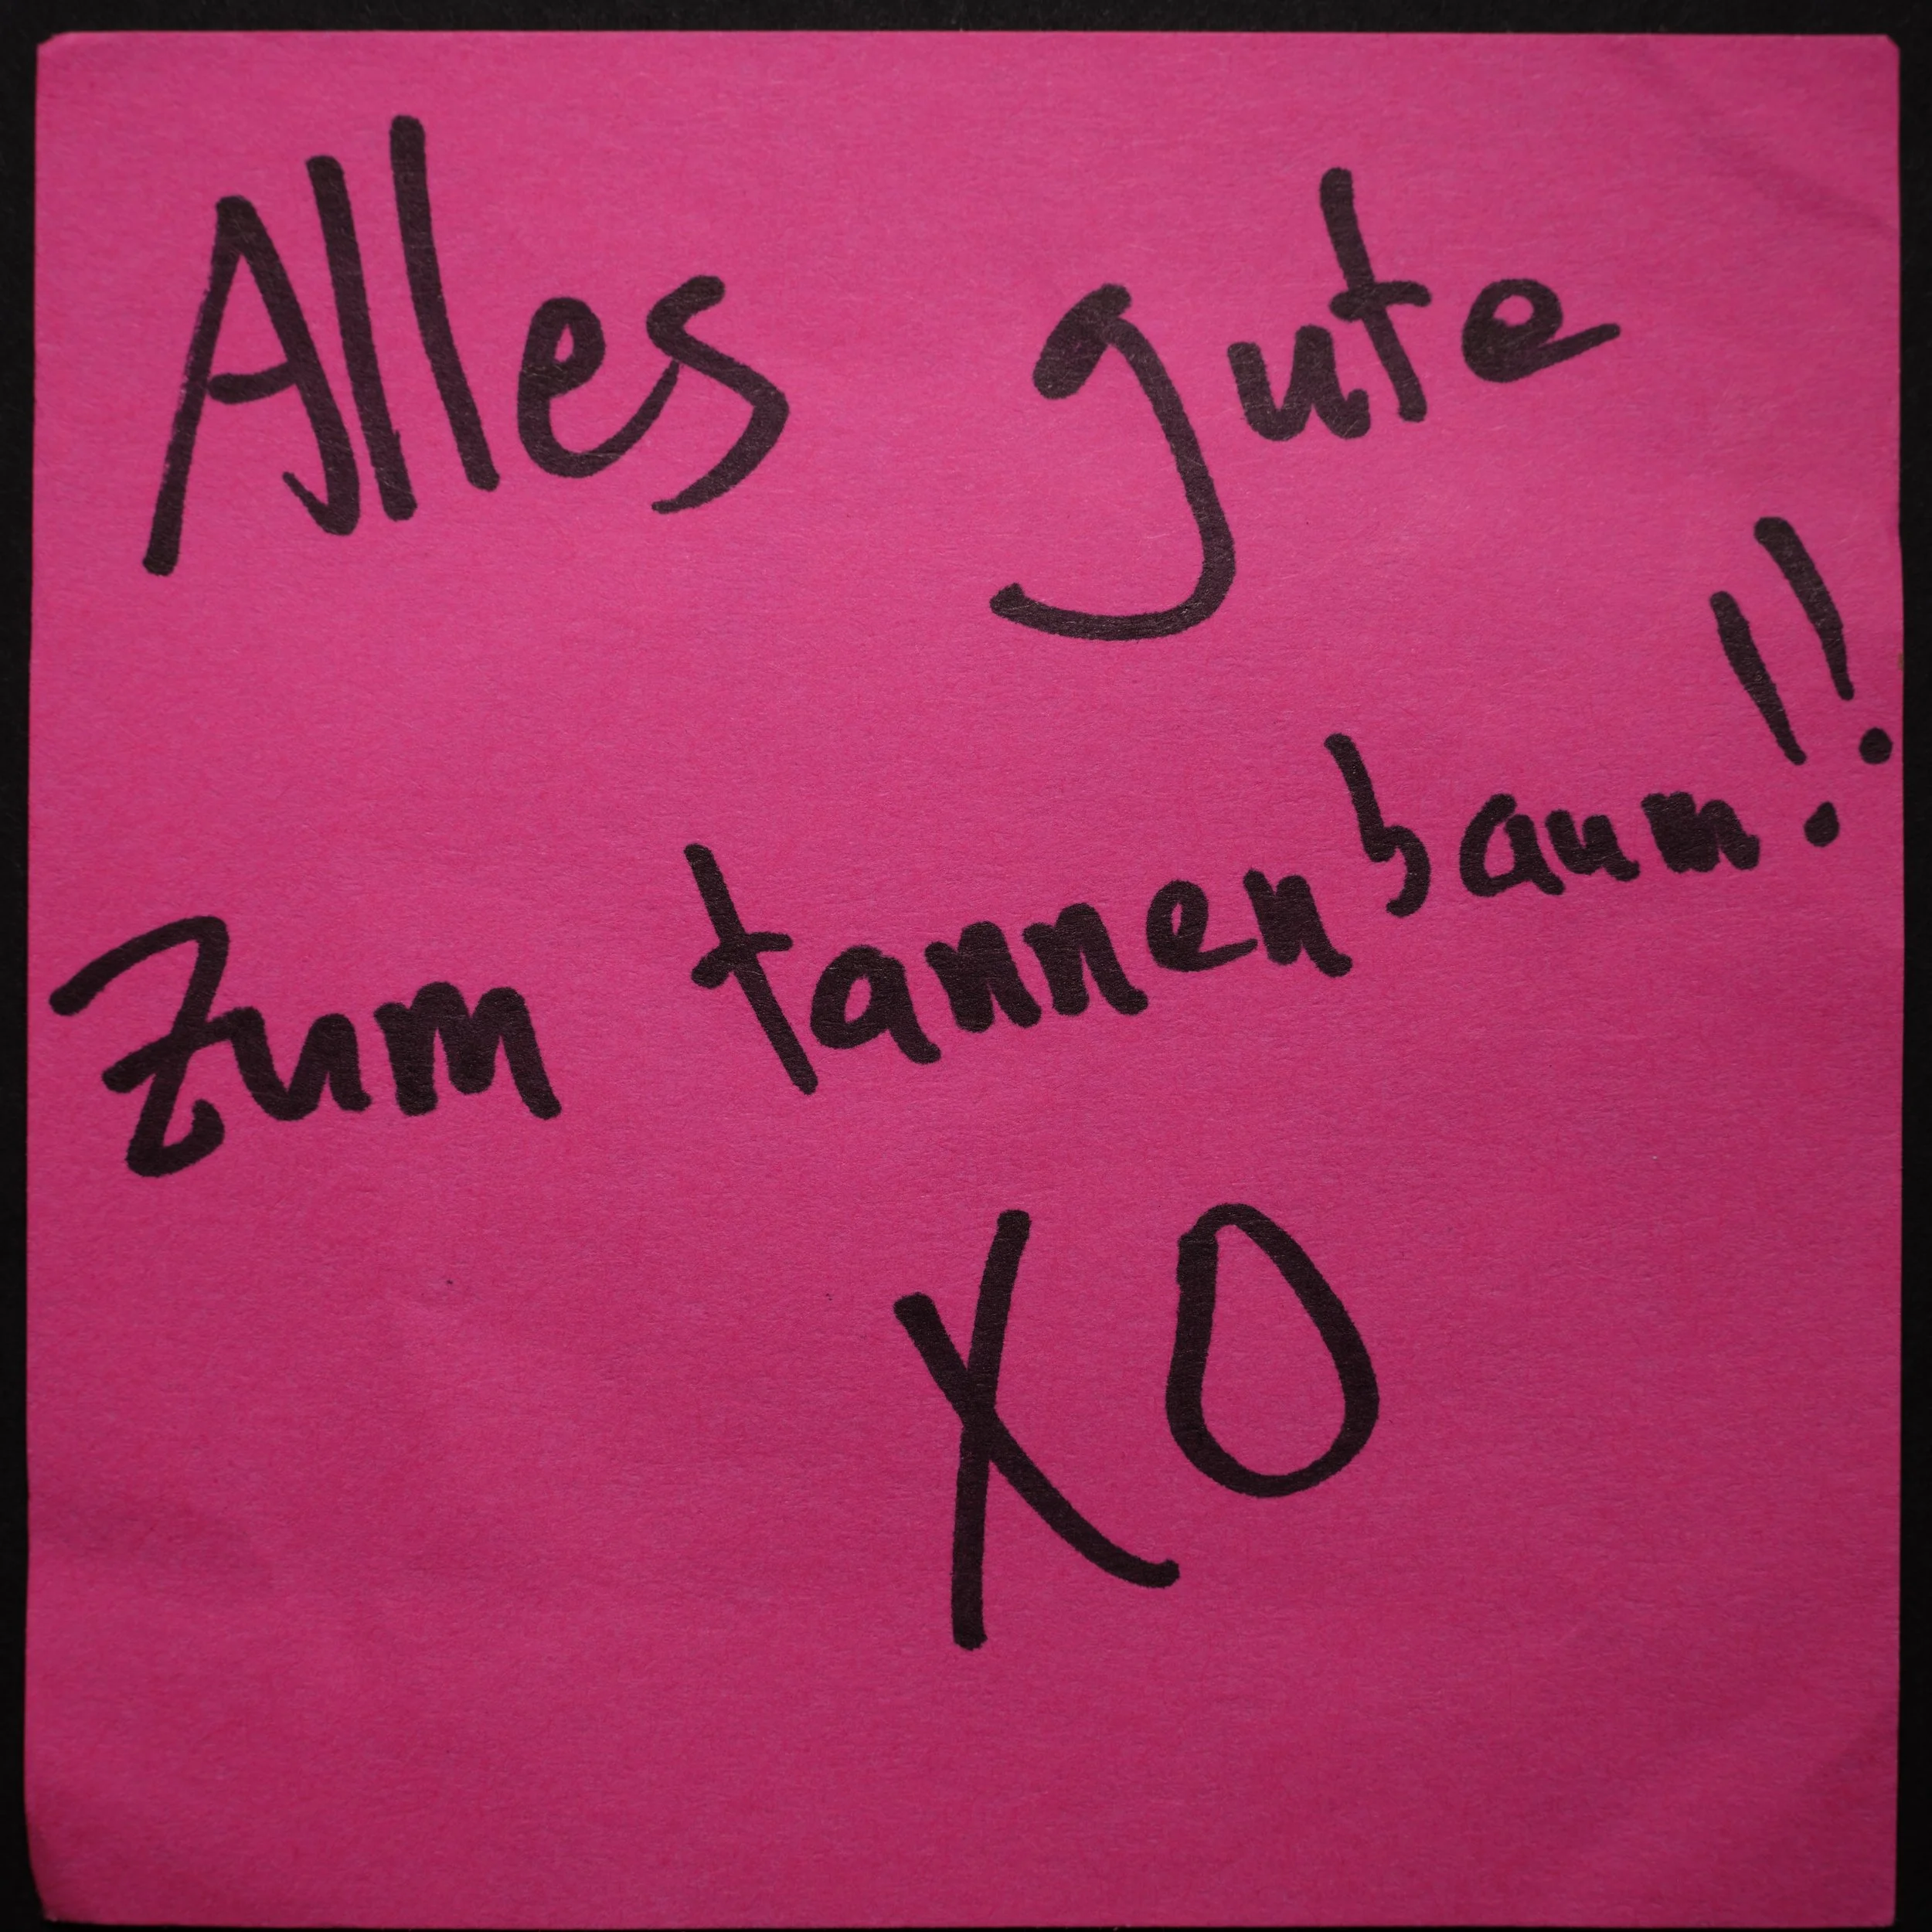 Alles gute
Zum tannenbaum!!
XO